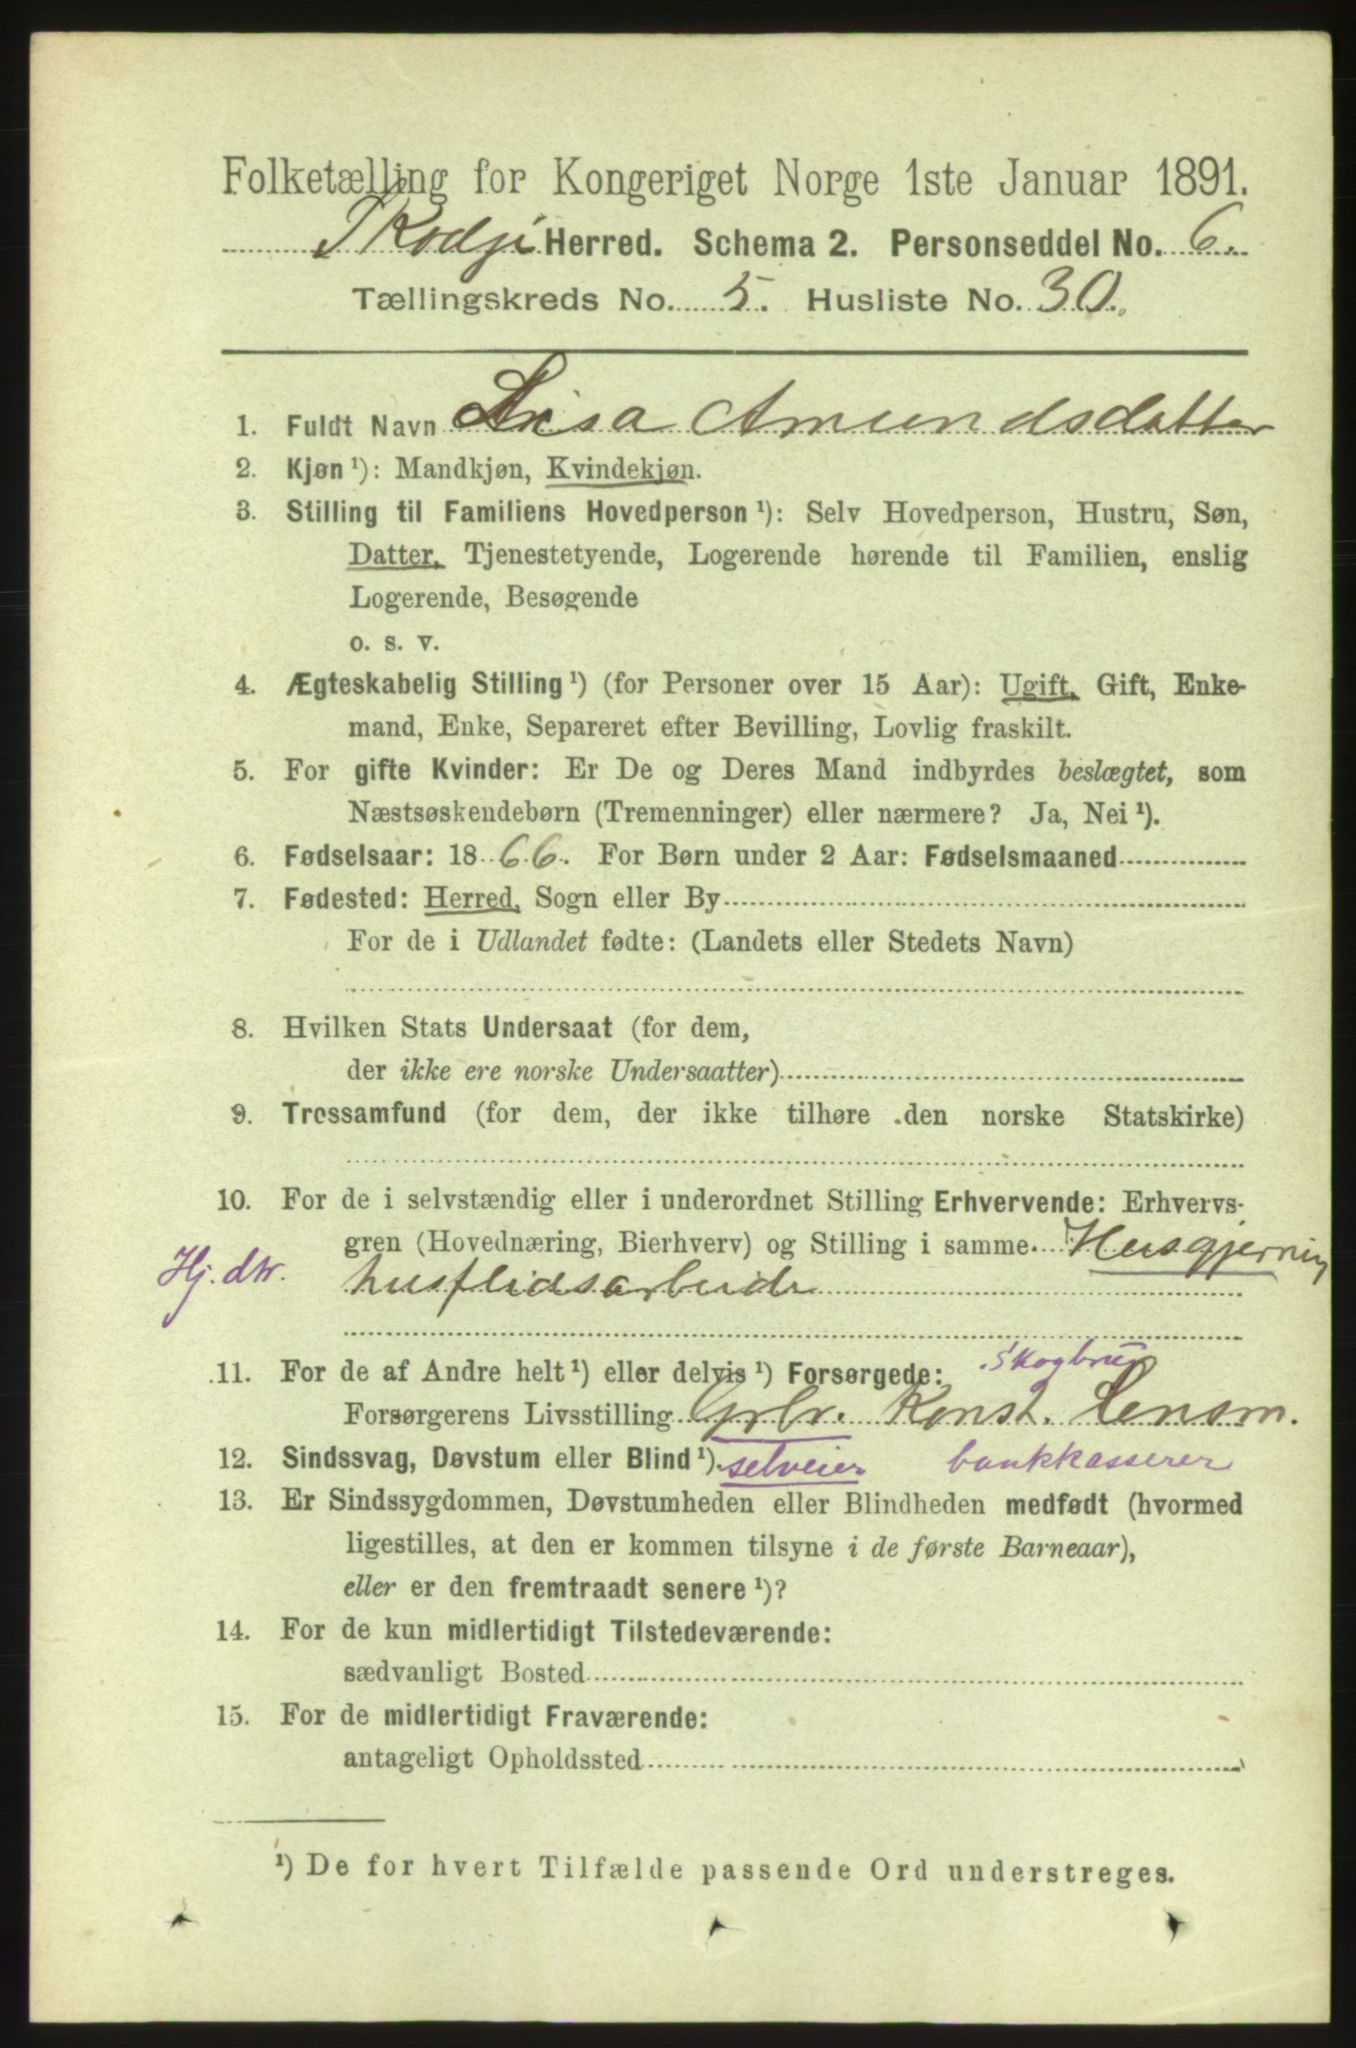 Folketælling for Kongeriget Norge 1ste Januar 1891.
Skodje Herred. Schema 2. Personseddel No. 6.
Tællingskreds No. 5. Husliste No. 30.
1. Fuldt Navn Amundsdatter
2. Kjøn ¹): Mandkjøn, Kvindekjøn.
3. Stilling til Familiens Hovedperson ¹): Selv Hovedperson, Hustru, Søn,
Datter, Tjenestetyende, Logerende hørende til Familien, enslig
Logerende, Besøgende
o. s. v.
4. Ægteskabelig Stilling ¹) (for Personer over 15 Aar): Ugift, Gift, Enke-
mand, Enke, Separeret efter Bevilling, Lovlig fraskilt.
5. For gifte Kvinder: Er De og Deres Mand indbyrdes beslægtet, som
Næstsøskendebørn (Tremenninger) eller nærmere? Ja, Nei ¹).
6. Fødselsaar: 1866. For Børn under 2 Aar: Fødselsmaaned
7. Fødested: Herred, Sogn eller By
For de i Udlandet fødte: (Landets eller Stedets Navn)
8. Hvilken Stats Undersaat (for dem,
der ikke ere norske Undersaatter)
9. Trossamfund (for dem, der ikke tilhøre den norske Statskirke)
10. For de i selvstændig eller i underordnet Stilling Erhvervende: Erhvervs-
gren (Hovednæring, Bierhverv) og Stilling i samme. Husgjerning
Hj. dtr. husflidsarbeide
11. For de af Andre helt ¹) eller delvis ¹) Forsørgede: skogbrug
Forsørgerens Livsstilling Grbr. Konst. Lensm.
12. Sindssvag, Døvstum eller Blind ¹). selveier bankkasserer
13. Er Sindssygdommen, Døvstumheden eller Blindheden medfødt (hvormed
ligestilles, at den er kommen tilsyne i de første Barneaar),
eller er den fremtraadt senere ¹)?
14. For de kun midlertidigt Tilstedeværende:
sædvanligt Bosted
15. For de midlertidigt Fraværende:
antageligt Opholdssted
¹) De for hvert Tilfælde passende Ord understreges.